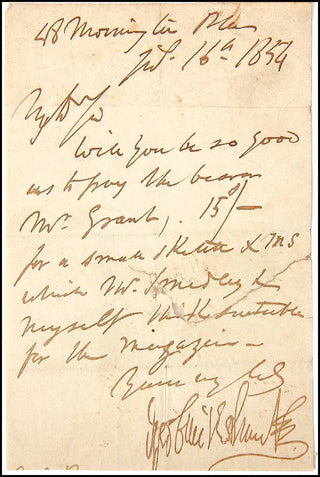 48 Mornington Place
Feb. 16th 1854
My Dr Sir
Will you be so good
as to pay the bearer
Mr. Grant, 15/-
for a small sketch & MS
which Mr. Smedley &
myself think suitable
for the magazine -
Yours
Geo Cruikshank